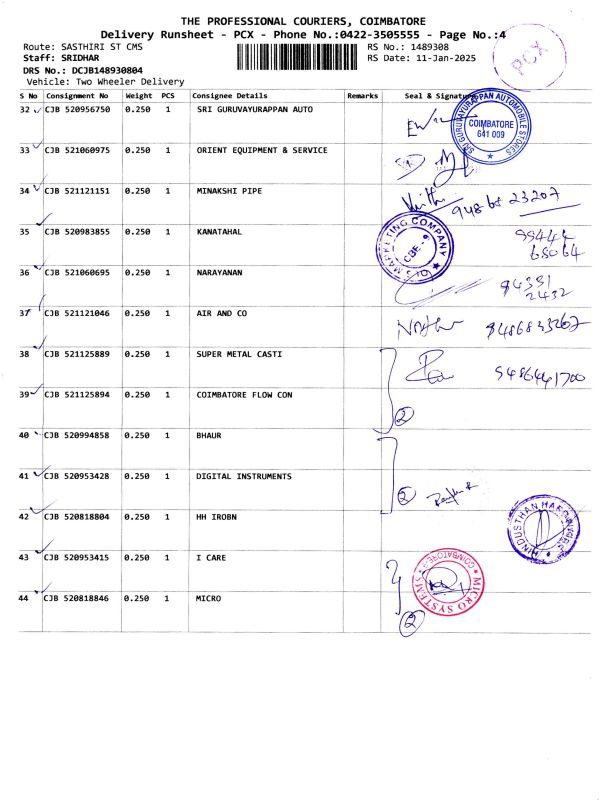 THE PROFESSIONAL COURIERS, COIMBATORE
Delivery Runsheet - PCX - Phone No.:0422-3505555 - Page No.:4
Route: SASTHIRI ST CMS
RS No.: 1489308
PCX
Staff: SRIDHAR
RS Date: 11-Jan-2025
DRS No.: DCJB148930804
Vehicle: Two Wheeler Delivery
S No Consignment No Weight PCS Consignee Details Remarks Seal & Signature
32 CJB 520956750 0.250 1 SRI GURUVAYURAPPAN AUTO
SRI GURUVAYURAPPAN AUTOMOBILE STORES
COIMBATORE
641 009
33 CJB 521060975 0.250 1 ORIENT EQUIPMENT & SERVICE
34 CJB 521121151 0.250 1 MINAKSHI PIPE
35 CJB 520983855 0.250 1 KANATAHAL
MARKETING COMPANY
CBE - 9
99444
68064
36 CJB 521060695 0.250 1 NARAYANAN
94391
2432
37 CJB 521121046 0.250 1 AIR AND CO
38 CJB 521125889 0.250 1 SUPER METAL CASTI
39 CJB 521125894 0.250 1 COIMBATORE FLOW CON
2
40 CJB 520994858 0.250 1 BHAUR
41 CJB 520953428 0.250 1 DIGITAL INSTRUMENTS
2
42 CJB 520818804 0.250 1 HH IROBN
INDUSTHAN HARDWARES
43 CJB 520953415 0.250 1 I CARE
MICRO SYSTEMS
COIMBATORE
44 CJB 520818846 0.250 1 MICRO
2